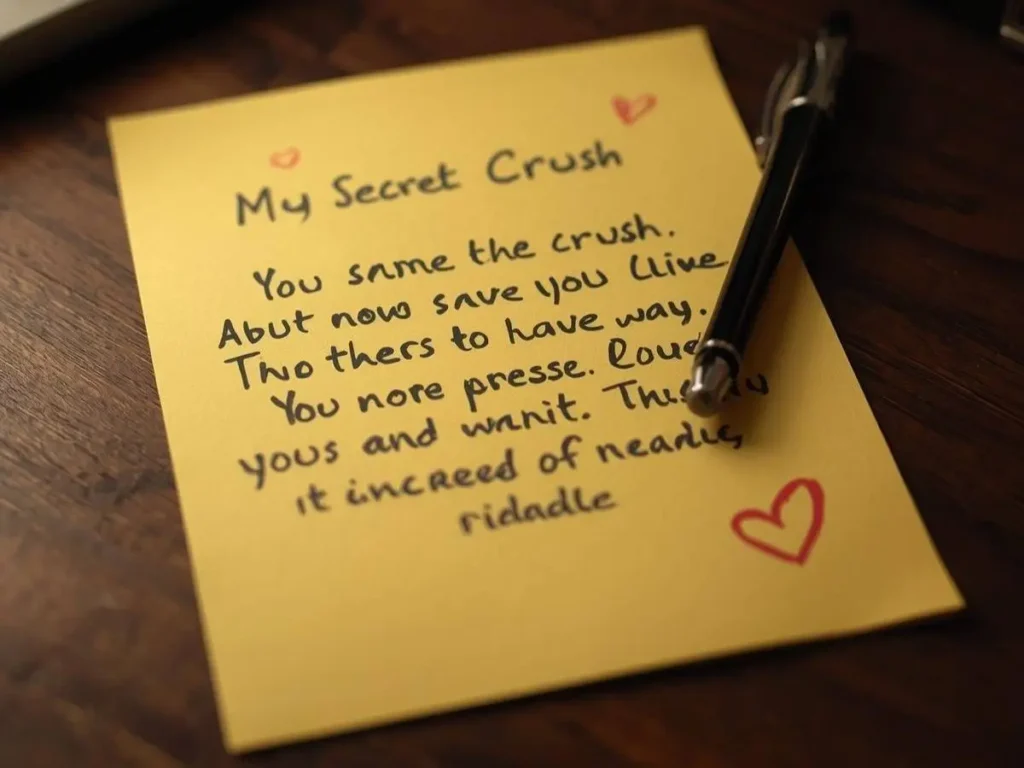 My Secret Crush
You snme the crush.
Abut now snve you Llive
Two thers to have way.
You nore presse.
yous and wnnit.
it increed of
ridadle